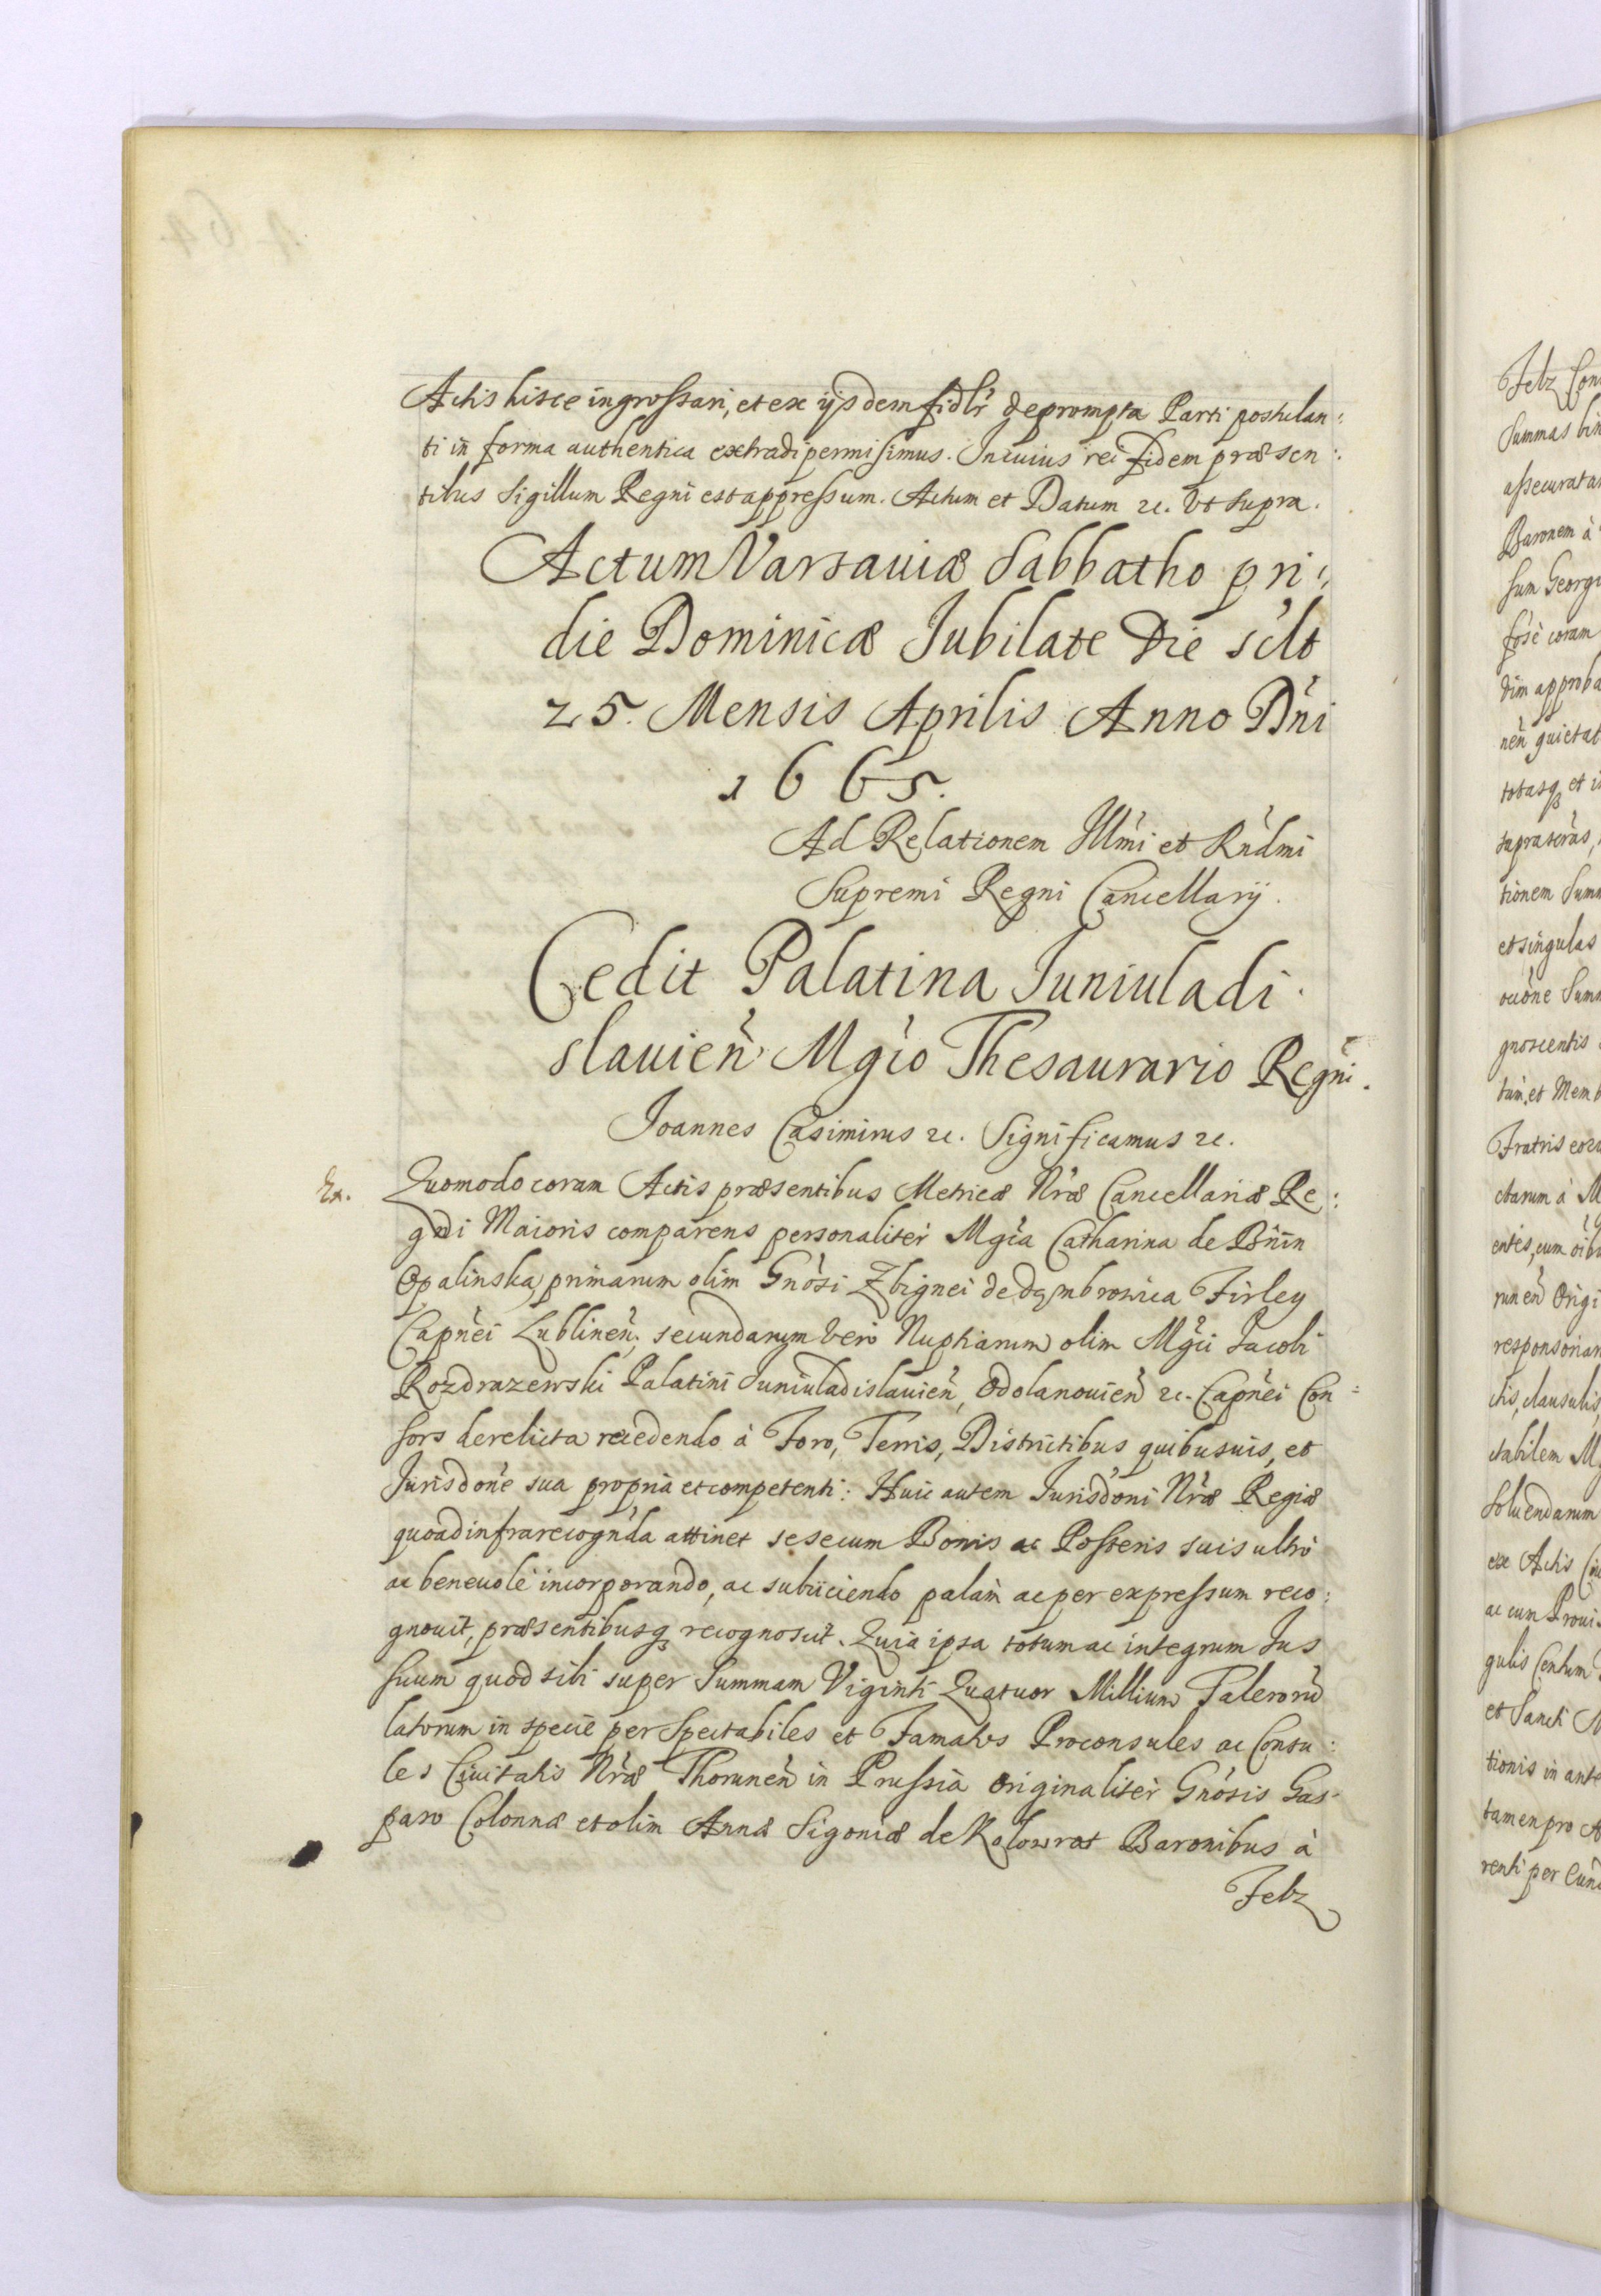 Actis hisce ingrossari, et ex ijsdem fidlr deprompta Parti postulan:
ti in forma authentica extradi permisimus. In cuius rei fidem præsen:
tibus Sigillum Regni est appressum. Actum et Datum &c. Vt supra.
Actum Varsauiæ Sabbatho pri:
die Dominicæ Jubilate Die scilt
25. Mensis Aprilis Anno Dni
1665.
Ad Relationem Illmi et Rndmi
Supremi Regni Cancellarij.
Cedit Palatina Juniuladi:
slauien Mgco Thesaurario Regni.
Joannes Casimirus &c. Significamus &c.
Ex. Quomodo coram Actis præsentibus Metricæ Nræ Cancellariæ Re:
gni Maioris comparens personaliter Mgca Catharina de Bnin
Opalinska, primarum olim Gnosi Zbignei de Dąmbrowica Firley
Capnei Lublinen. secundarum vero Nuptiarum olim Mgci Jacobi
Rozdrazewski Palatini Juniuladislauien, Odolanouien &c. Capnei Con=
sors derelicta recedendo à Foro, Terris, Districtibus quibusuis, et
Jurisdone sua propria et competenti: Huic autem Jurisdoni Nræ Regiæ
quoad infrarecognda attinet se se cum Bonis ac Posteris suis ultrò
ac beneuolè incorporando, ac subijciendo palàm ac per expressum reco:
gnouit, præsentibusq recognoscit. Quia ipsa totum ac integrum Jus
suum quod sibi super Summam Viginti Quatuor Millium Taleroru
latorum in specie per Spectabiles et Famatos Proconsules ac Consu:
les Ciuitatis Nræ Thorunen in Prussia originaliter Gnosis Gas-
paro Colonnæ et olim Annæ Sigoniæ de Kolowrat Baronibus à
Felz
Felz
Summas
assecurata
Baronem à
sum Georgi
coram
approba
nen quietat
totasq et
suprascras,
tionem Sum
et singulas
Sum
gnoscentis
et Memb
Fratris
ctarum à M
entes, cum
runen Origi
responsorian
ctis, clausulis,
ctabilem M
soluendarum
ex Actis
ac cum Proui
gulis Centum
et Sancti
tionis in ante
tamen pro
renti per